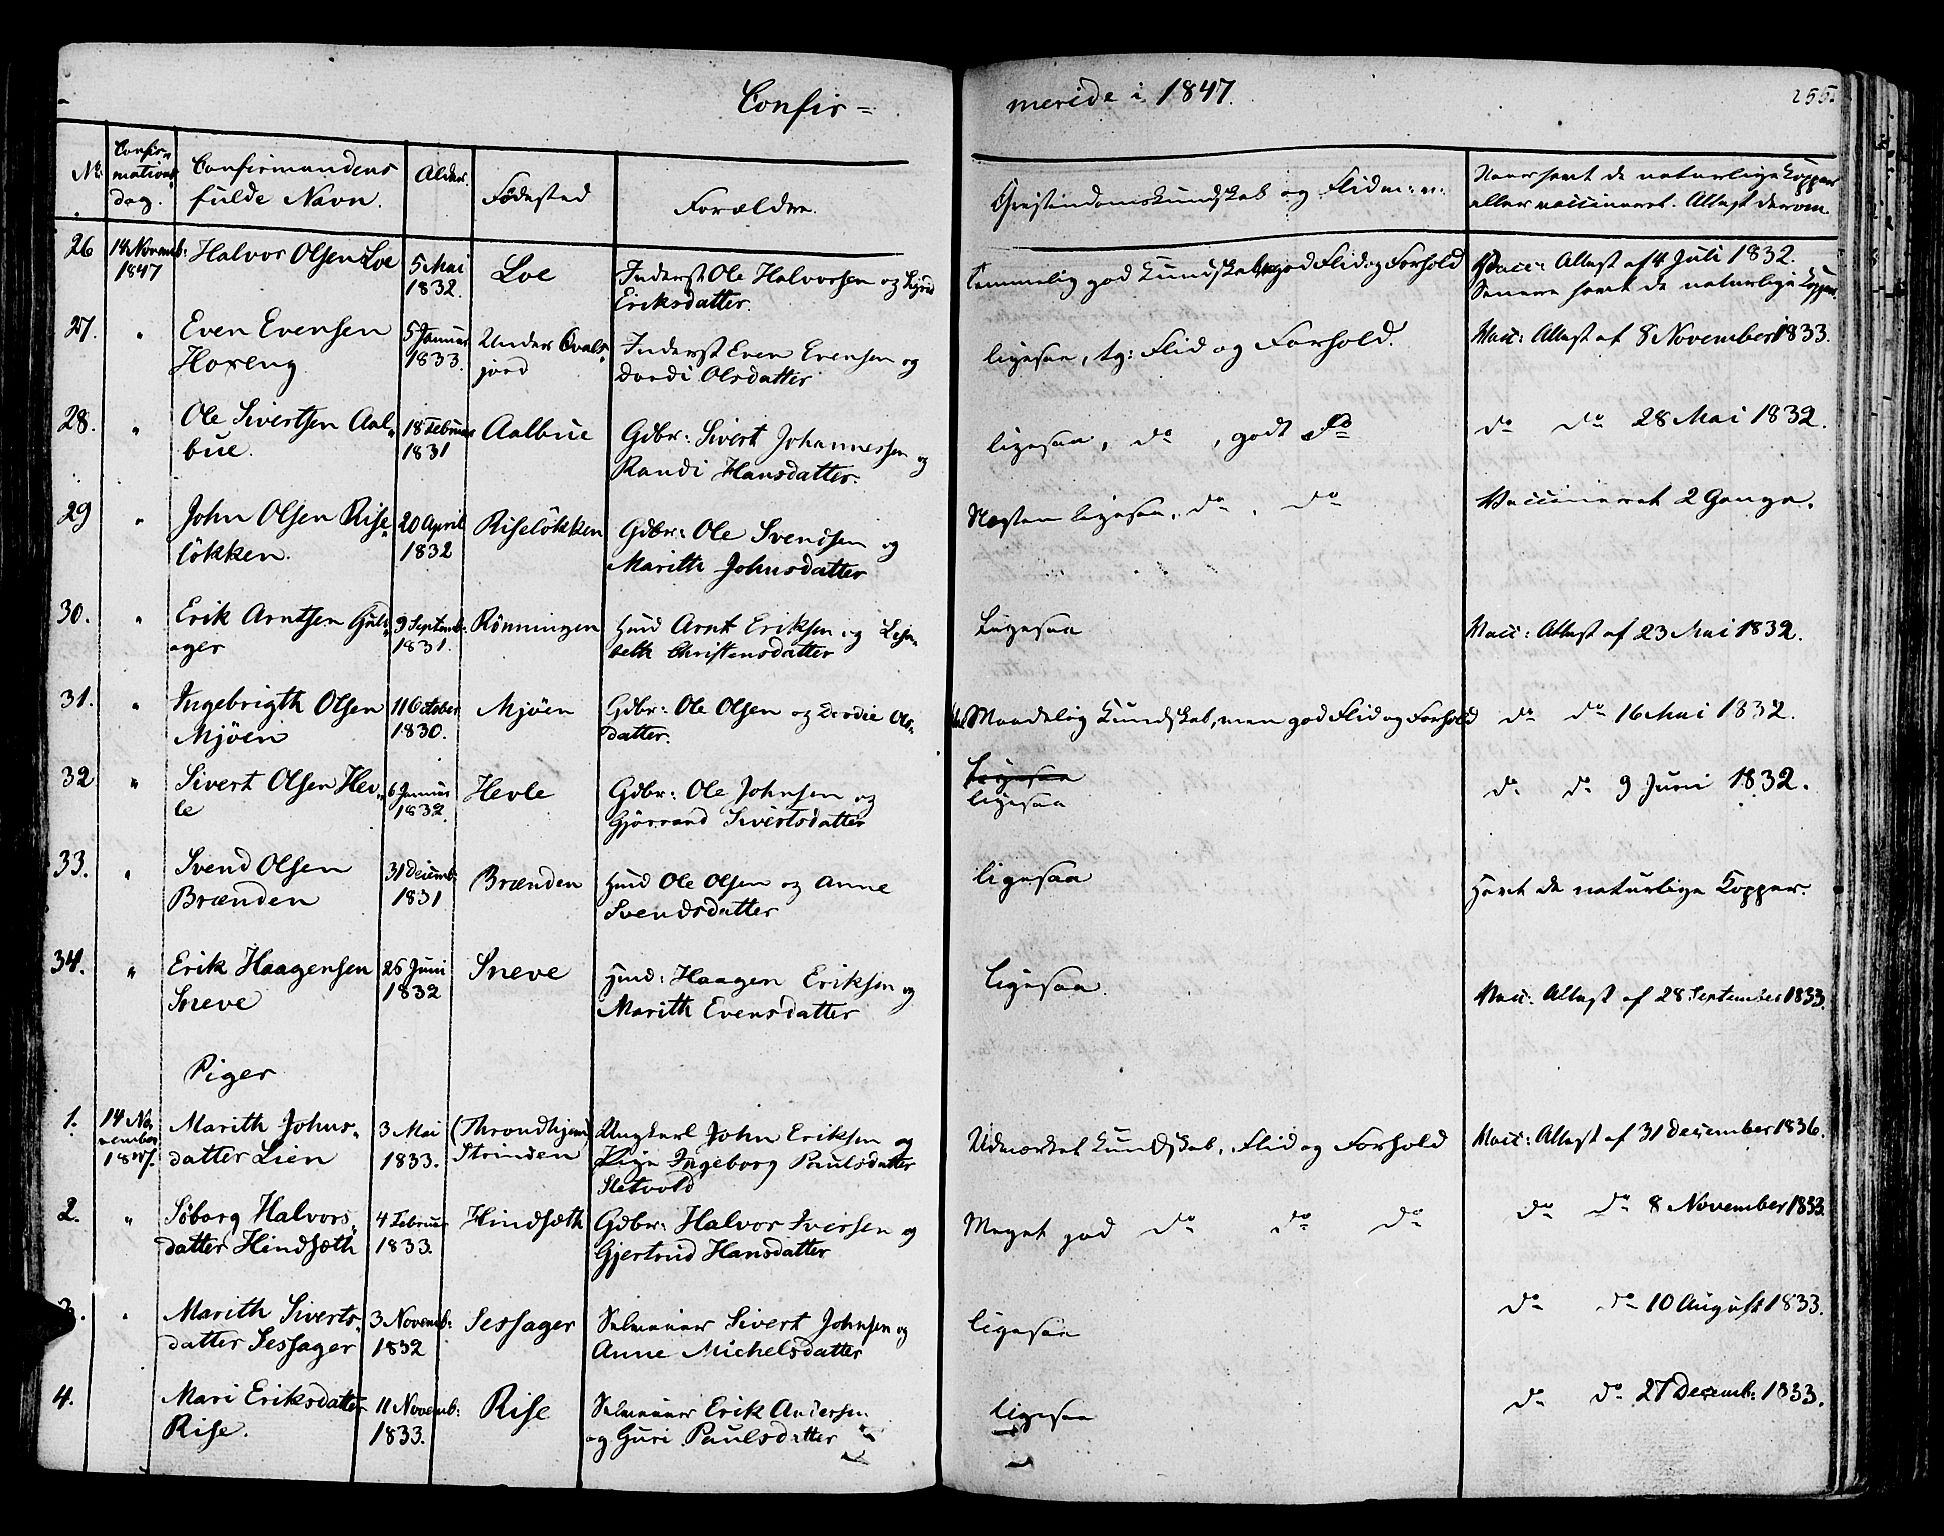 Confir=
merede i 1847.
255.
No.
Confir-
mations-
dag.
Confirmandens
fulde Navn.
Alder.
Fødested
Forældre.
Christendomskundskab og Flid m: v:
Naar havt de naturlige Kopper
eller vaccineret. Attest derom.
26
14 Novemb:
1847
Halvor Olsen Loe
5 Mai
1832.
Loe
Inderst Ole Halvorsen og Sigrid
Eriksdatter.
temmelig god Kundskab, god Flid og Forhold
Vacc: Attest af 4 Juli 1832.
Senere havt de naturlige Kopper.
27.
"
Even Evensen
Hoxeng
5 Januar
1833.
Under Qvals-
jord
Inderst Even Evensen og
Dordi Olsdatter
ligesaa, tg: Flid og Forhold.
Vacc: Attest af 8 November 1833.
28.
"
Ole Sivertsen Aal-
bue.
18 Februar
1831
Aalbue
Gdbr: Sivert Johannessen og
Randi Hansdatter.
ligesaa, do , godt Fo
do do 28 Mai 1832.
29
"
John Olsen Rise-
løkken.
20 April
1832
Riseløkken
Gdbr: Ole Svendsen og
Marith Johnsdatter
Næsten ligesaa, do, do
Vaccineret 2 Gange.
30.
"
Erik Arntsen Guld-
ager
9 Septemb:
1831.
Rønningen
Huusmd Arnt Eriksen og Lisa-
beth Christensdatter
Ligesaa
Vacc: Attest af 23 Mai 1832.
31.
"
Ingebrigth Olsen
Mjøen
11 October
1830.
Mjøen
Gdbr: Ole Olsen og Dordie Ols-
datter.
Maadelig Kundskab, men god Flid og Forhold
do do 16 Mai 1832.
32
"
Sivert Olsen Hev-
le
6 Januar
1832.
Hevle
Gdbr: Ole Johnsen og
Gjørrand Sivertsdatter
Ligesaa
ligesaa
do do 9 Juni 1832.
33.
"
Svend Olsen
Brænden
31 Decemb:
1831
Brænden
Hmd Ole Olsen og Anne
Svendsdatter
ligesaa
Havt de naturlige Kopper.
34.
"
Erik Haagensen
Sneve
26 Juni
1832
Sneve
Hmd: Haagen Eriksen og
Marith Evensdatter
Ligesaa.
Vacc: Attest af 28 September 1833.
Piger
1.
14 No-
vember
1847.
Marith Johns-
datter Lien
3 Mai
1833.
(Throndhjem)
Strinden
Ungkarl John Eriksen og
Pige Ingeborg Paulsdatter
Sletvold
Udmærket Kundskab, Flid og Forhold
Vacc: Attest af 31 December 1836.
2.
"
Søborg Halvors-
datter Hindsæth
4 Februar
1833.
Hindsæth
Gdbr: Halvor Iversen og
Gjertrud Hansdatter
Meget god do do do
do do 8 November 1833.
3.
"
Marith Siverts-
datter Sessager
3 Novemb:
1832
Sessager
Selveier Sivert Johnsen og
Anne Michelsdatter
ligesaa
do do 10 August 1833.
4.
Mari Eriksdatter
Rise.
11 Novemb:
1833.
Rise
Selveier Erik Andersen
og Guri Paulsdatter
ligesaa
do do 27 Decemb: 1833.